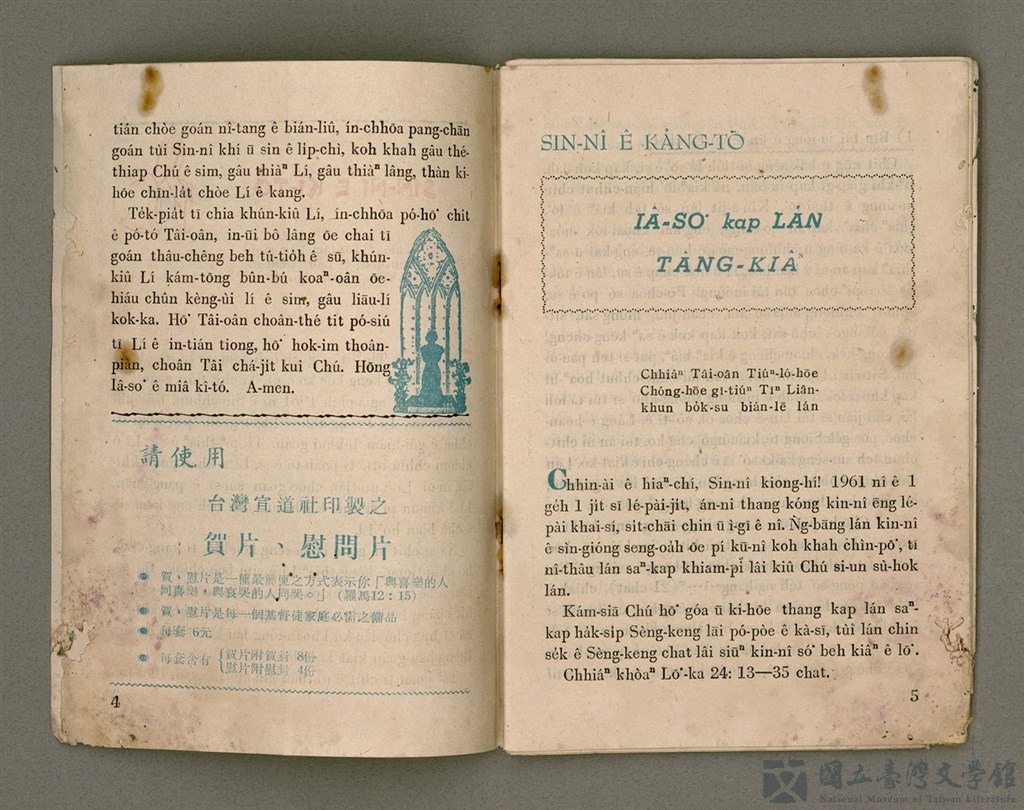 tián chòe goán nî-tang ê bián-liû, ín-chhōa pang-chān
goán tùi Sin-nî khí ū sin ê li̍p-chì, koh khah gâu thé-
thiap Chú ê sim, gâu thiàⁿ Lí, gâu thiàⁿ lâng, thàn ki-
hōe chīn-la̍t chòe Lí ê kang.
Te̍k-pia̍t tī chia khún-kiû Lí, ín-chhōa pó-hō͘ chit
ê pó-tó Tâi-oân, in-ūi bô lâng ōe chai tī
goán thâu-chêng beh tú-tio̍h ê sū, khún-
kiû Lí kám-tōng bûn-bú koaⁿ-oân ōe-
hiáu chûn kèng-ùi lí ê sim, gâu liāu-lí
kok-ka. Hō͘ Tâi-oân choân-thé tit pó-siú
tī Lí ê in-tián tiong, hō͘ hok-im thoân-
piàn, choân Tâi chá-ji̍t kui Chú. Hōng
Iâ-so͘ ê miâ kî-tó. A-men.
請使用
台灣宣道社印製之
賀片、慰問片
賀，慰片是一種最簡便之方式表示你「與喜樂的人
同喜樂，與哀哭的人同哭。」（羅馬12：15）
賀，慰片是每一個基督徒家庭必需之備品
每套 6元
每套含有 {賀片附賀封 8份
慰片附慰封 4份
4
SIN-NÎ Ê KÁNG-TŌ
IÂ-SO͘ kap LÁN
TÂNG-KIÂⁿ
Chhiáⁿ Tâi-oân Tiúⁿ-ló-hōe
Chóng-hōe gī-tiúⁿ Tīⁿ Liân-
khun bo̍k-su bián-lē lán
Chhin-ài ê hiaⁿ-chí, Sin-nî kiong-hí! 1961 nî ê 1
ge̍h 1 ji̍t sī lé-pài-ji̍t, án-ni thang kóng kin-nî ēng lé-
pài khai-sí, si̍t-chāi chin ū ì-gī ê nî. Ǹg-bāng lán kin-nî
ê sìn-gióng seng-oa̍h ōe pí kū-nî koh khah chìn-pō͘, tī
nî-thâu lán saⁿ-kap khiam-pī lâi kiû Chú si-un sù-hok
lán.
Kám-siā Chú hō͘ góa ū ki-hōe thang kap lán saⁿ-
kap ha̍k-si̍p Sèng-keng lāi pó-pòe ê kà-sī, tùi lán chin
se̍k ê Sèng-keng chat lâi siūⁿ kin-nî só͘ beh kiâⁿ ê lō͘.
Chhiáⁿ khòaⁿ Lō͘-ka 24: 13—35 chat.
5
國立臺灣文學館
National Museum of Taiwan Literature